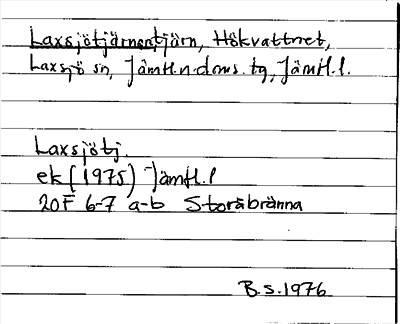 Laxsjötjärnentjärn, Hökvattnet,
Laxsjö sn, Jämtl. n. doms. tg, Jämtl. l.
Laxsjötj.
ek (1975) Jämtl. l
20F 6-7 a-b Storåbränna
B.S. 1976